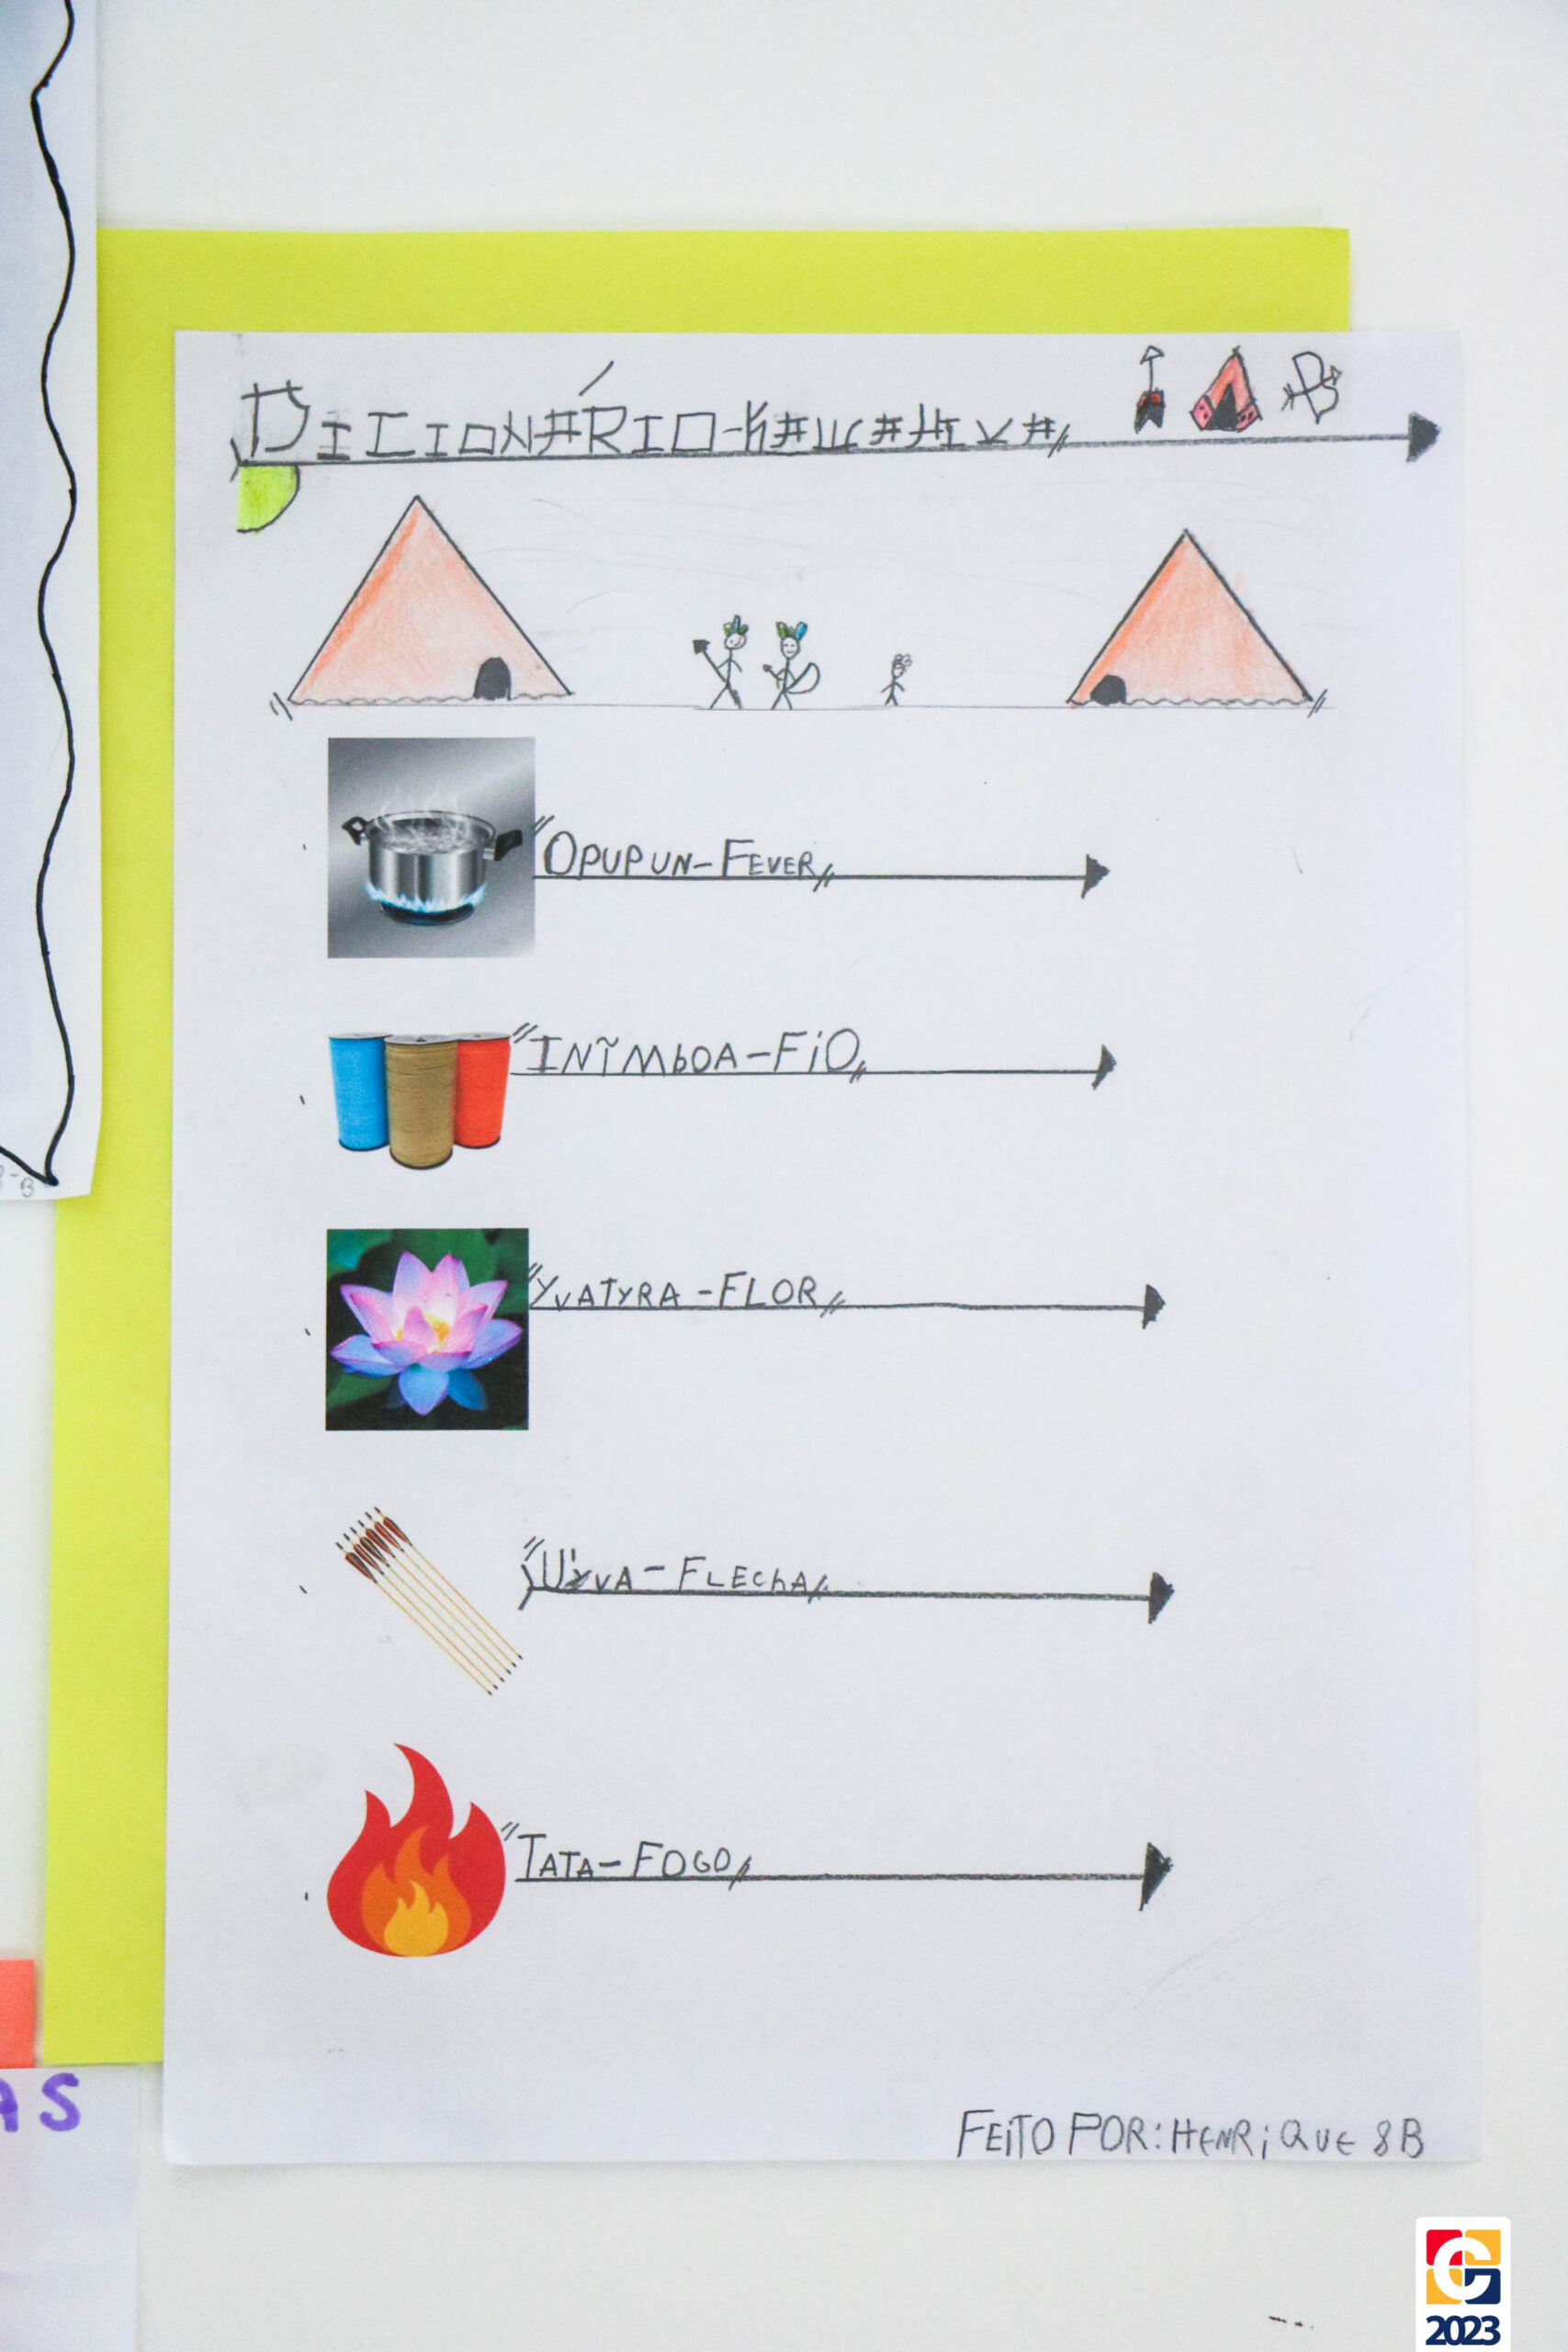 DICIONÁRIO-KAWAHIVA//
"OPUPUN-FEVER//
"INĨMbOA-FiO//
"YVATYRA-FLOR//
"U'YVA-FLEChA//
"TATA-FOGO//
FEITO POR: HENRiQUE 8B
AS
2023